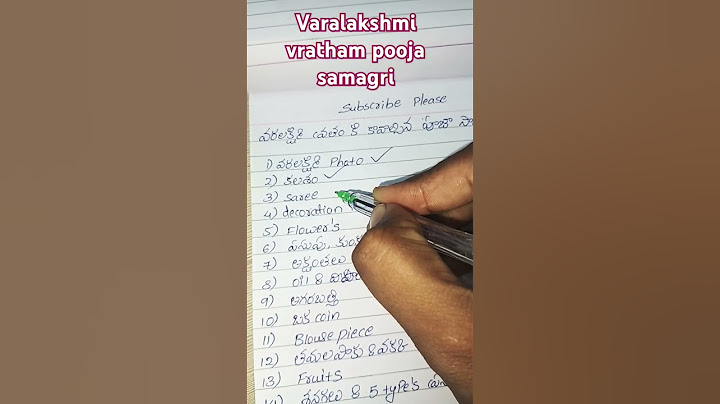 Varalakshmi
vratham pooja
samagri
Subscribe Please
వరలక్ష్మి వ్రతం కి కావాల్సిన పూజా
1) వరలక్ష్మి Photo ✓
2) కలశం ✓
3) Saree
4) decoration
5) Flower's
6) పసుపు,
7) అక్షంతలు
8) oil &
9) అగరబత్తి
10) ఒక coin
11) Blouse piece
12) తమలపాకు &
13) Fruits
14) శనగలు & 5 type's